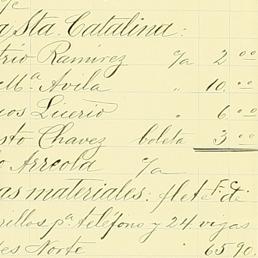 a Sta. Catalina:
trio Ramirez c/a 2 00
Mª. Avila " 10. 00
cos Licerio " 6 00
sto Chavez boleta 3 00
o Arreola c/a
as materiales: flete. de
rillos pª. teléfono y 24 vigas
es Norte " 65 90.